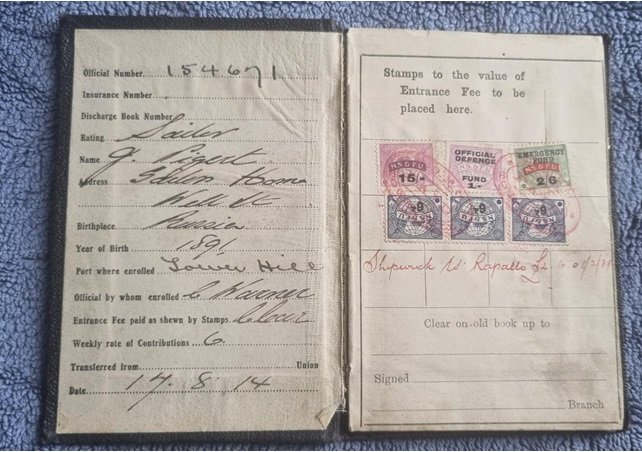 Official Number 154671
Insurance Number
Discharge Book Number
Rating Sailor
Name J.
Address Sailors Home
Well St
Birthplace Russia
Year of Birth 1891
Port where enrolled Tower Hill
Official by whom enrolled C Warner
Entrance Fee paid as shewn by Stamps Clear
Weekly rate of Contributions 6
Transferred from Union
Date 17.8.14
Stamps to the value of
Entrance Fee to be
placed here.
N.S.&F.U.
15/-
OFFICIAL
DEFENCE
N.S.&F.U.
FUND
1/-
EMERGENCY
FUND
N.S.&F.U.
2/6
6d
N.S.&F.U.
6d
N.S.&F.U.
6d
N.S.&F.U.
Shipwrick Rapallo £2
Clear on old book up to
Signed
Branch